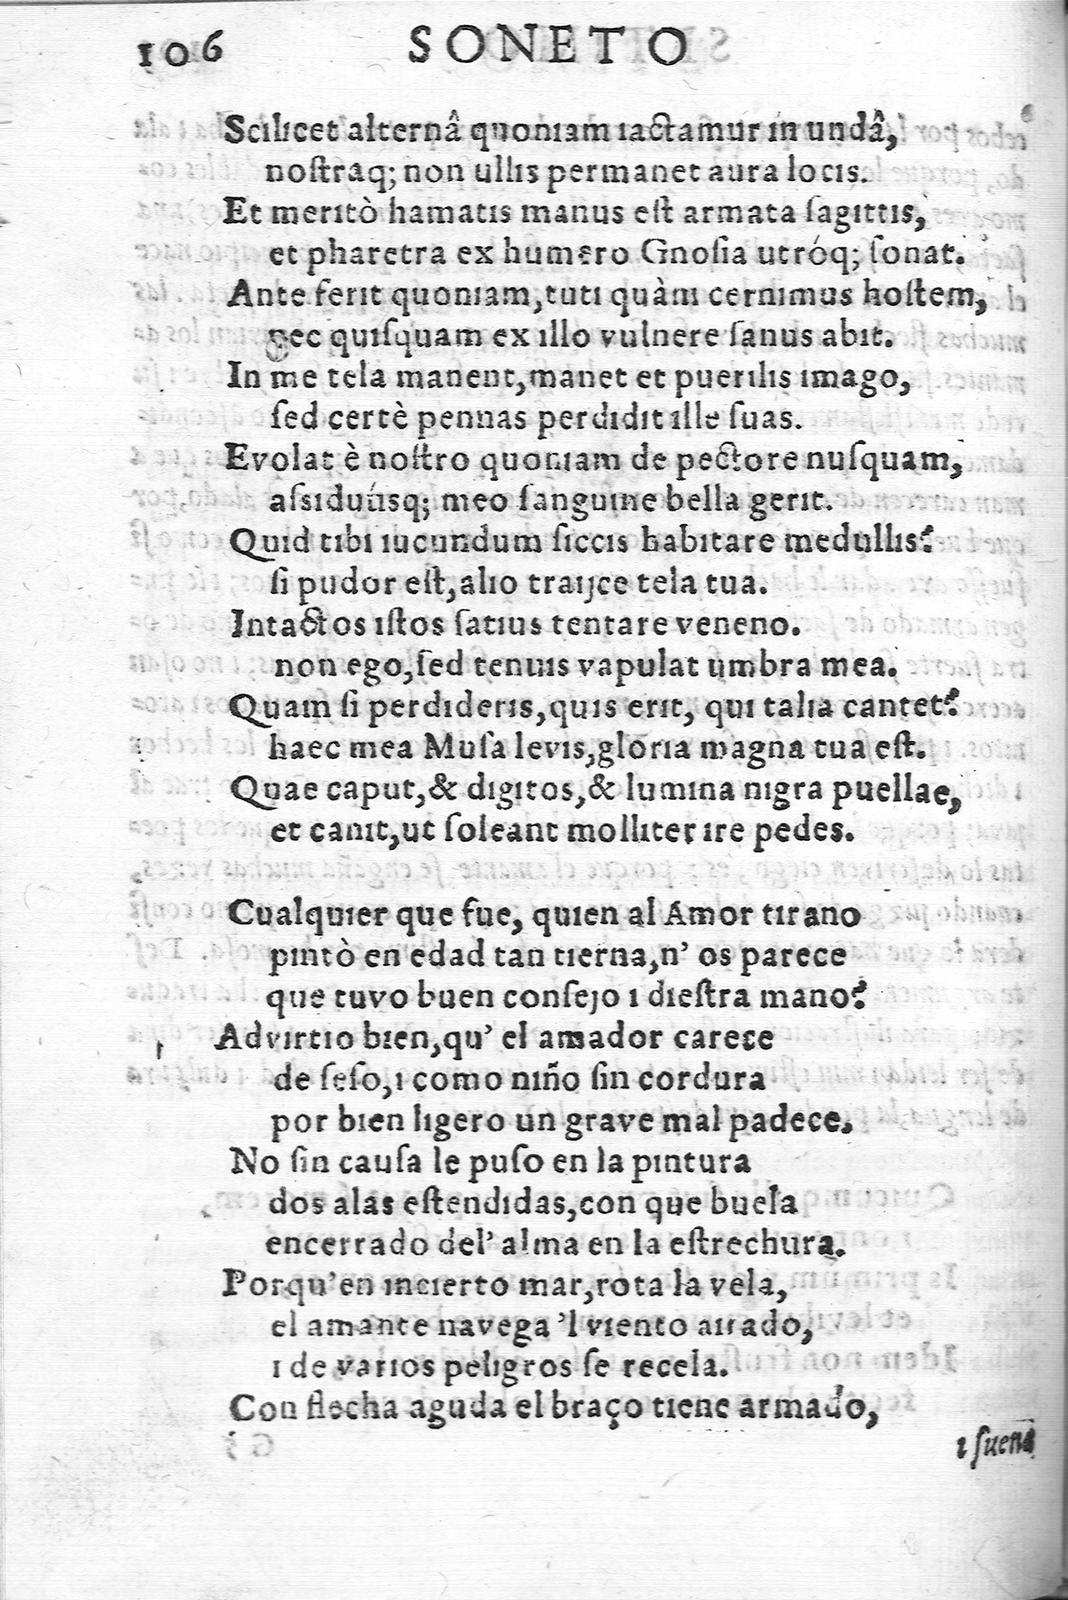 106 SONETO
Scılıcet alternâ quonıam ıactamur ın undâ,
noſtraq; non ullıs permanet aura locıs.
Et merıtò hamatıs manus eſt armata ſagıttıs,
et pharetra ex humero Gnoſıa utróq; ſonat.
Ante ferıt quonıam, tutı quàm cernımus hoſtem,
nec quıſquam ex ıllo vulnere ſanus abıt.
In me tela manent, manet et puerılıs ımago,
ſed certè pennas perdıdıt ılle ſuas.
Evolat è noſtro quonıam de pectore nuſquam,
aſsıduúsq; meo ſanguıne bella gerıt.
Quıd tıbı ıucundum ſıccıs habıtare medullıs?
ſı pudor eſt, alıo traıȷce tela tua.
Intactos ıſtos ſatıus tentare veneno.
non ego, ſed tenuıs vapulat umbra mea.
Quam ſı perdıderıs, quıs erıt, quı talıa cantet?
haec mea Muſa levıs, glorıa magna tua eſt.
Quae caput, & dıgıtos, & lumına nıgra puellae,
et canıt, ut ſoleant mollıter ıre pedes.
Cualquıer que fue, quıen al Amor tırano
pıntò en edad tan tıerna, n' os parece
que tuvo buen conſejo ı dıeſtra mano?
Advırtıo bıen, qu' el amador carece
de ſeſo, ı como nıño ſın cordura
por bıen lıgero un grave mal padece.
No ſın cauſa le puſo en la pıntura
dos alas eſtendıdas, con que buela
encerrado del' alma en la eſtrechura.
Porqu'en ıncıerto mar, rota la vela,
el amante navega 'l vıento aırado,
ı de varıos pelıgros ſe recela.
Con flecha aguda el braço tıene armado,
ı ſuena